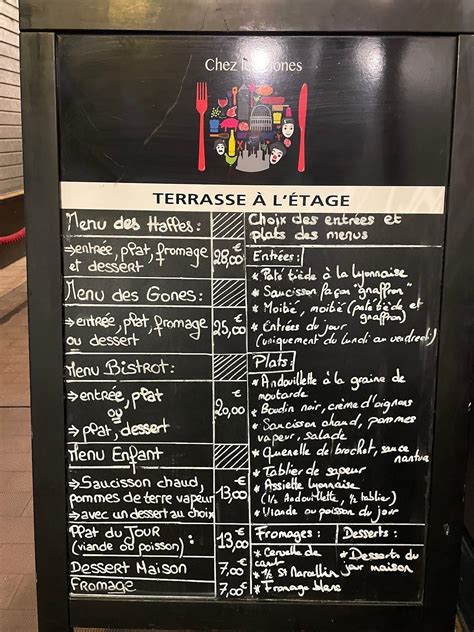 Chez les Gones
TERRASSE À L'ÉTAGE
Menu des Halles :
⇒ entrée, plat, fromage
et dessert
28,00€
Menu des Gones :
⇒ entrée, plat, fromage
ou dessert
25,00€
Menu Bistrot :
⇒ entrée, plat
ou
⇒ plat, dessert
20,00€
Menu Enfant
⇒ Saucisson chaud,
pommes de terre vapeur
⇒ avec un dessert au choix
13,00€
Plat du JOUR
(viande ou poisson) :
13,00€
Dessert Maison
7,00€
Fromage
7,00€
Choix des entrées et
plats des menus
Entrées :
* Paté tiède à la Lyonnaise
* Saucisson façon "gnaffron"
* Moitié, moitié (paté tiède et
gnaffron)
* Entrées du jour
(uniquement du lundi au vendredi)
Plats :
* Andouillette à la graine de
moutarde
* Boudin noir, crème d'oignons
* Saucisson chaud, pommes
vapeur, salade
* Quenelle de brochet, sauce
nantua
* Tablier de sapeur
* Assiette Lyonnaise
(1/2 Andouillette, 1/2 tablier)
* Viande ou poisson du jour
Fromages :
* Cervelle de
canut
* 1/2 St Marcellin
* Fromage blanc
Desserts :
* Desserts du
jour maison